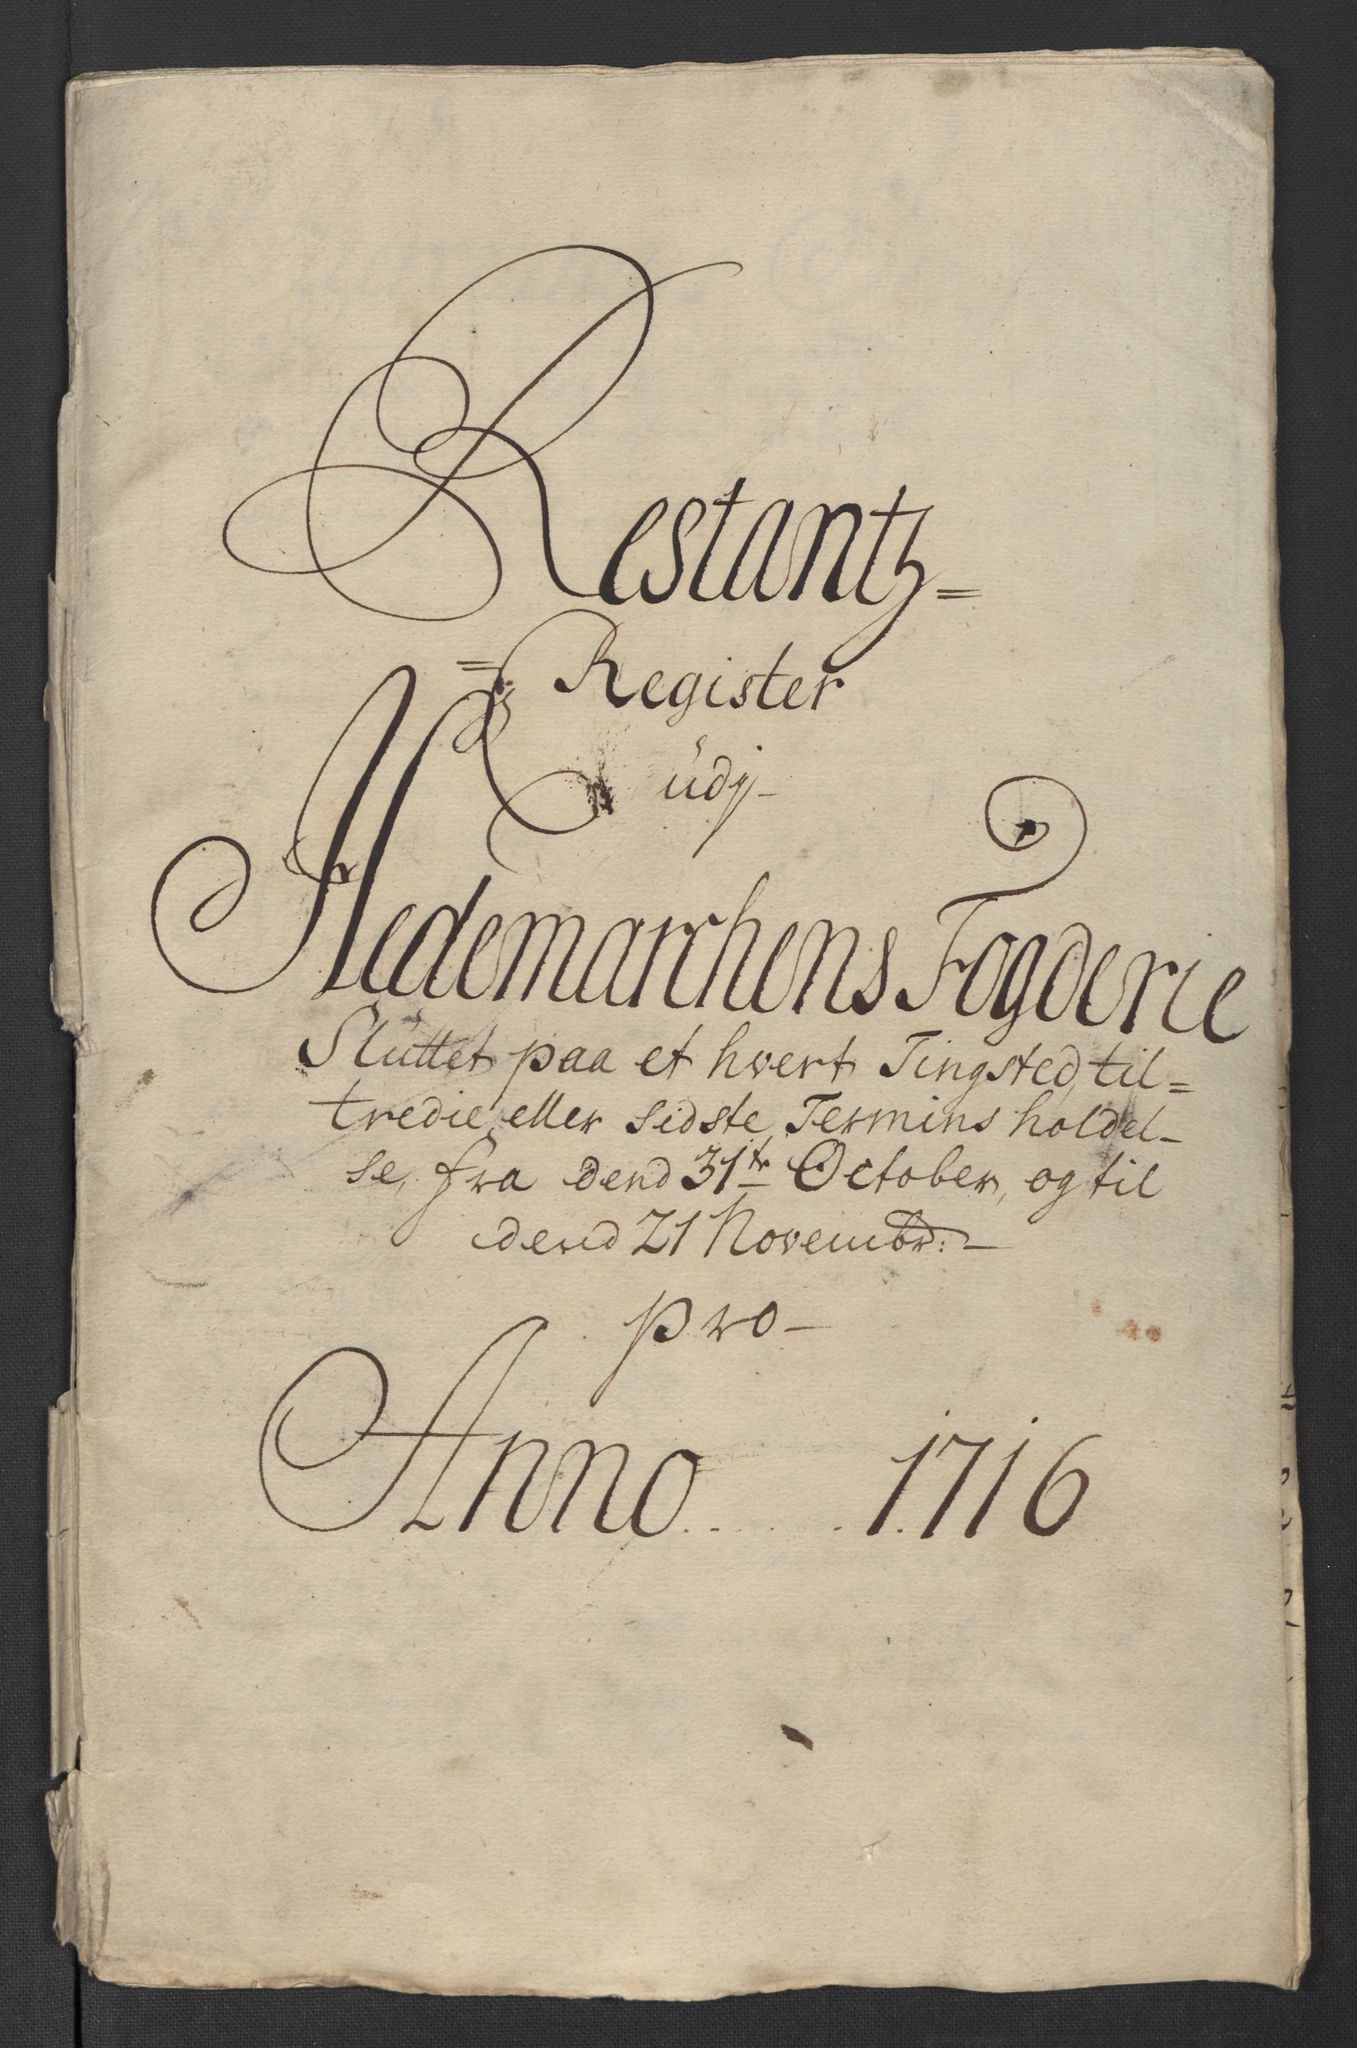 Restantz=
=Register
udj-
Hedemarchens Fogderie
Sluttet paa et hvert Tingsted, til=
tredie eller sidste Termins holdel-
se, fra dend 31te October, og til
dend 21 Novembr:-
pro-
Anno ...... 1716